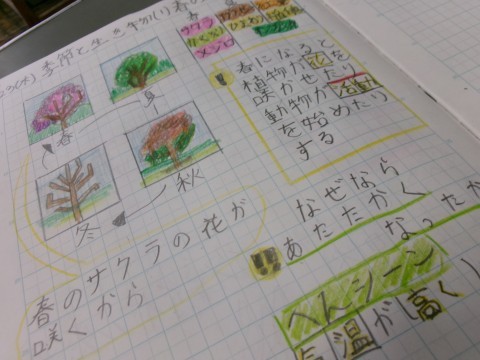 季節と生き物(1)春の
サクラ
メジロ
春になると
植物が花を
咲かせたり
動物が活動
を始めたり
する
春
夏
冬
秋
なぜなら
あたたかく
なったか
春のサクラの花が
咲くから
へんシーン
気温が高く